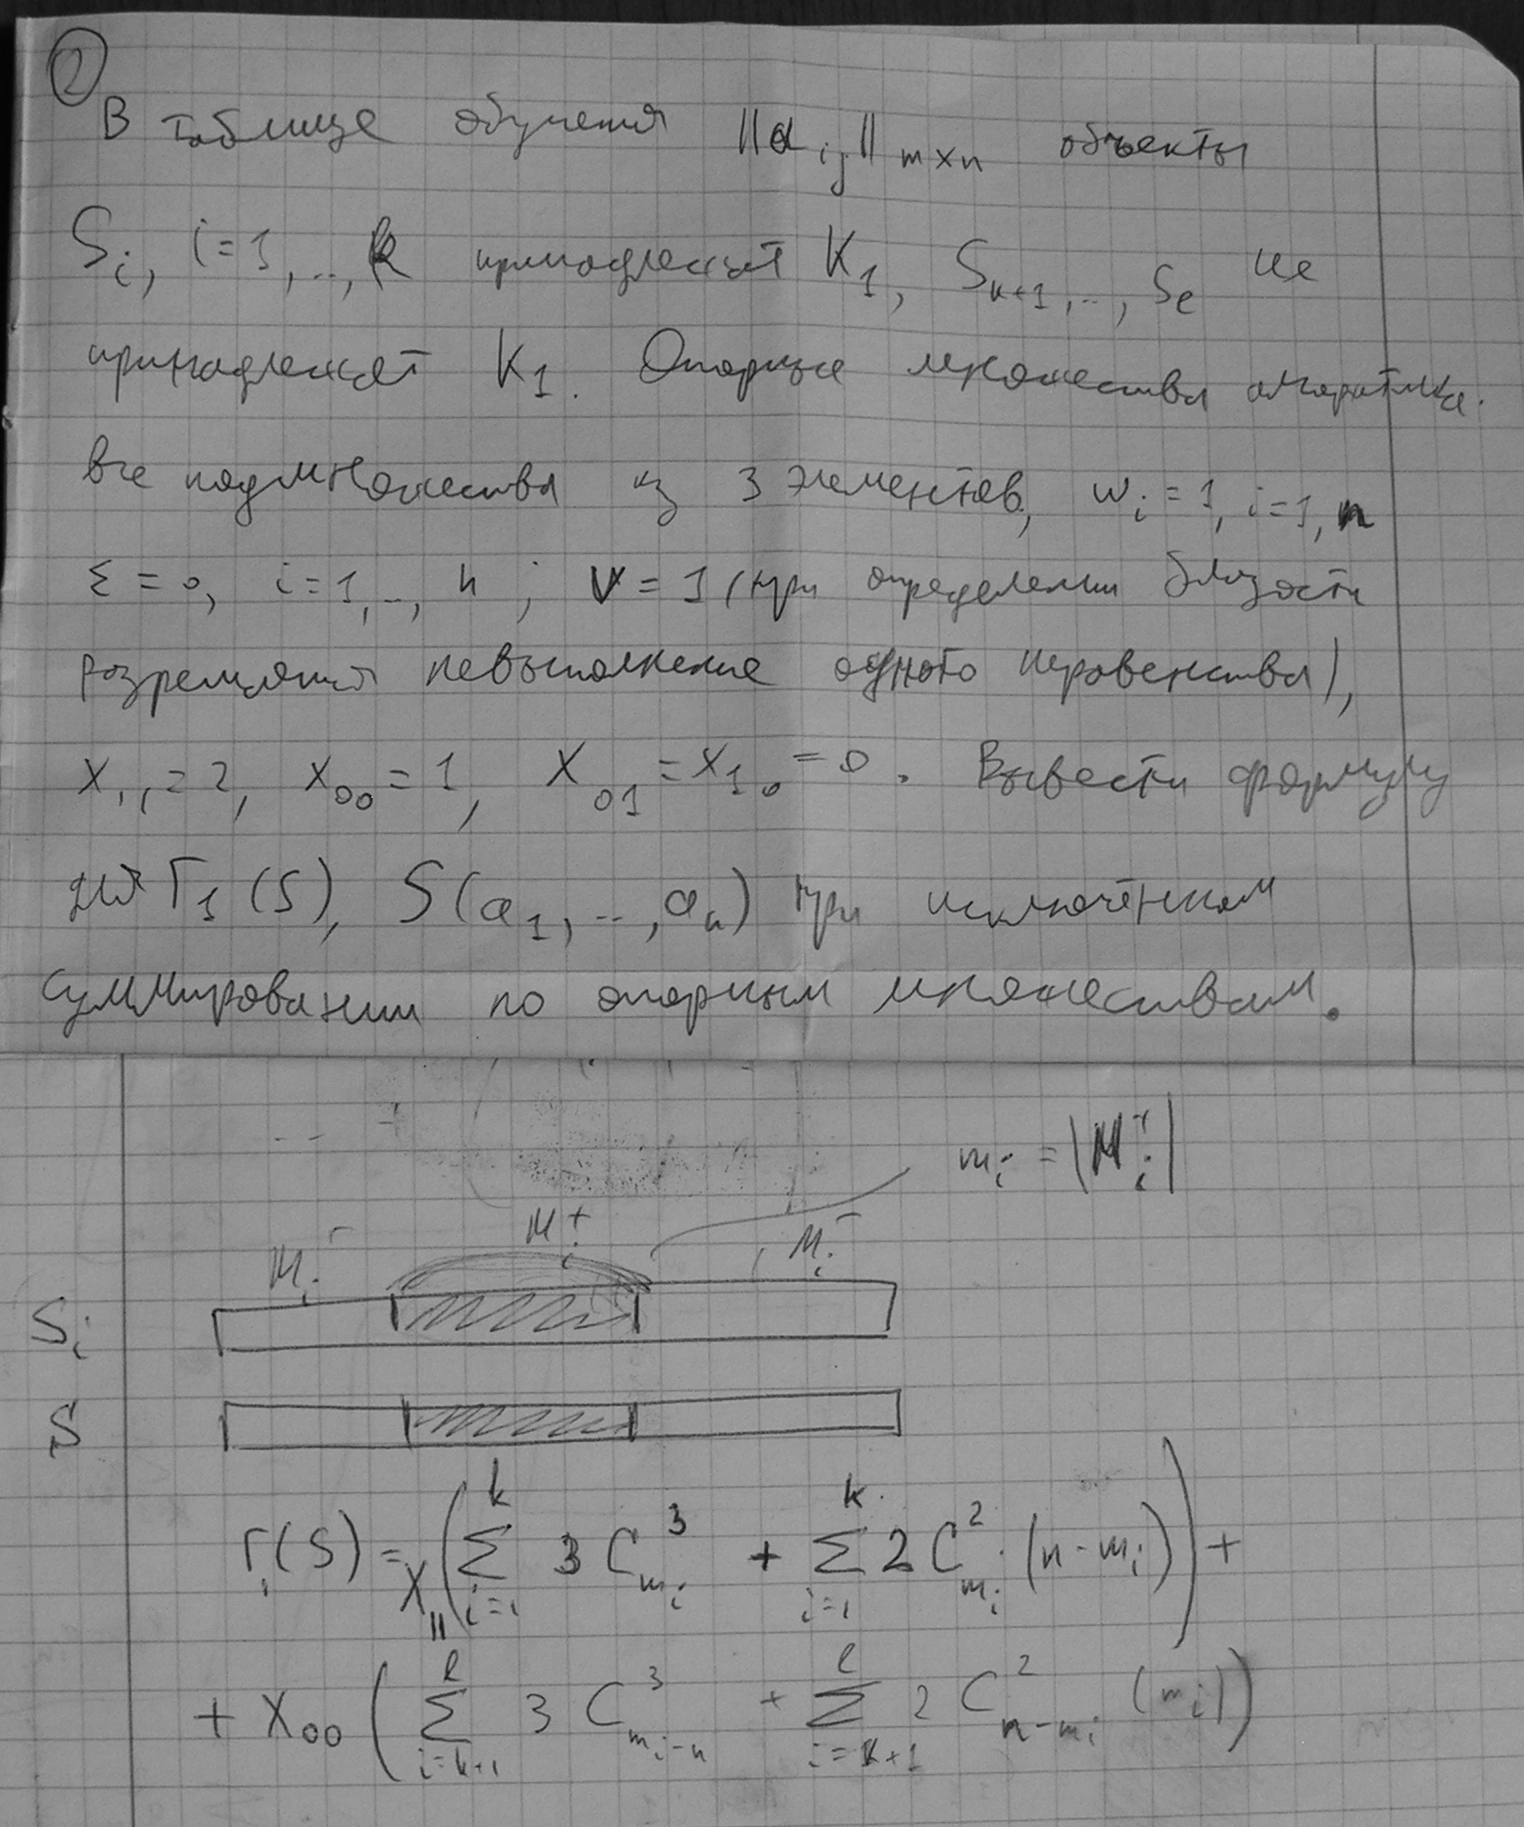 2
В таблице обучения ||a_ij||_m×n объекты
S_i, i=1,..,k принадлежат K_1, S_k+1,..,S_l не
принадлежат K_1. Опорные множества алгоритма
все подмножества из 3 элементов, w_i=1, i=1,n
ε=0, i=1,..,n; V=1 (при определении близости
разрешается невыполнение одного неравенства),
X_11=2, X_00=1, X_01=X_10=0. Вывести формулу
для Γ_1(S), S(a_1,..,a_n) при исключённом
суммировании по опорным множествам.
m_i = |M_i^+|
M_i^- M_i^+ M_i^-
S_i
S
Γ_1(S) = X_11 (∑_{i=1}^{k} 3 C_{m_i}^3 + ∑_{i=1}^{k} 2 C_{m_i}^2 · (n-m_i)) +
+ X_00 (∑_{i=k+1}^{l} 3 C_{m_i-n}^3 + ∑_{i=k+1}^{l} 2 C_{n-m_i}^2 (m_i))